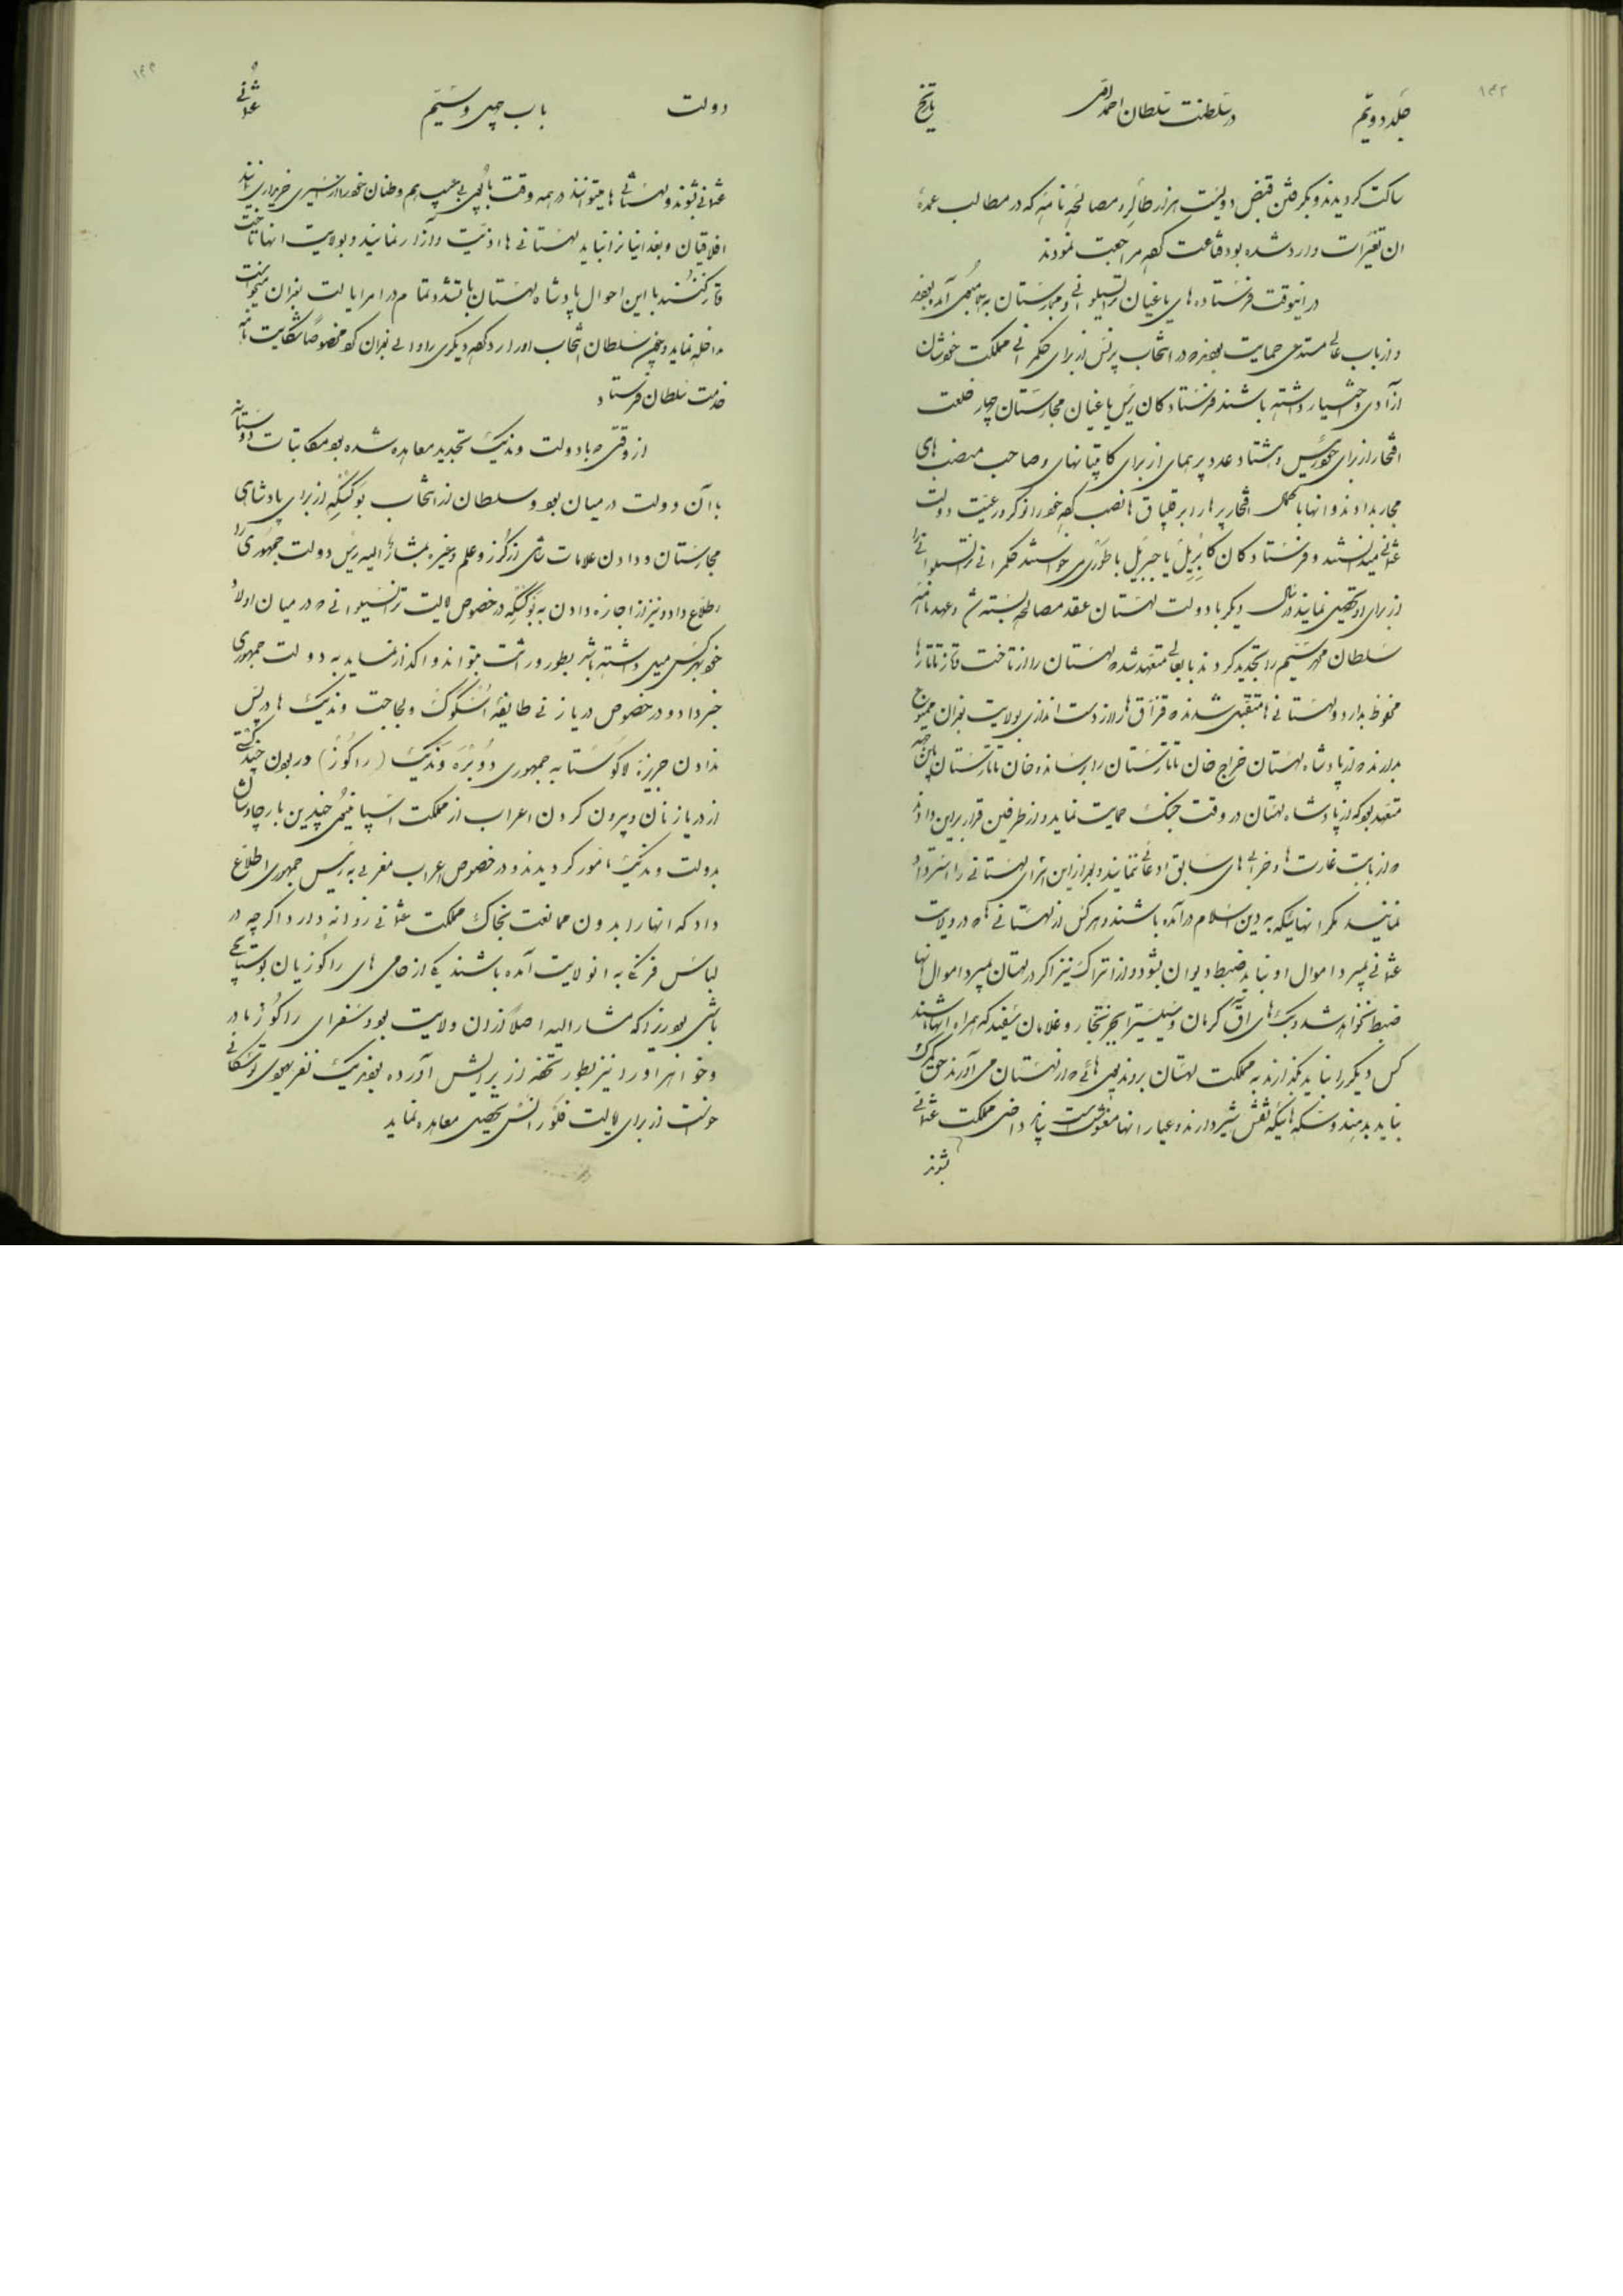 ۱۴۲
جلد دویم در سلطنت سلطان احمد اول تاریخ
ساکت کردیدند و بکرفتن قبض دویست هزار طالر و مصالحه نامه که در مطالب عمدهٔ
ان تغیرات وارد شده بود قناعت کرده مراجعت نمودند
در اینوقت فرستاده های یاغیان ترانسیلوانی و مجارستان به آمده بودند
و از باب عالی مستدعی حمایت بودند که در انتخاب پرنس از برای حکمرانی مملکت خودشان
ازادی و اختیار داشته باشند فرستادکان رئیس یاغیان مجارستان چهار خلعت
افتخار از برای خود رئیس و هشتاد عدد پرهمای از برای کاپیتانهای و صاحب منصب های
مجار بدادند و انها با کمال افتخار پرها را بر قلپاق ها نصب کرده خود را نوکر و رعیت دولت
عثمانی میدانستند و فرستادکان کابریل یا جبریل باطوری خواستند حکمرانی ترانسیلوانی را
از برای او تحصیل نمایند در سال دیکر با دولت لهستان عقد مصالحه بسته شد و عهدنامه
سلطان محمد سیم را تجدید کردند باب عالی متعهد شد که لهستان را از تاخت و تاز تاتارها
محفوظ بدارد و لهستانی ها متقبل شدند که قزاق ها را از دست اندازی بولایت بغدان ممنوع
بدارند که از پادشاه لهستان خراج خان تاتارستان را برساند و خان تاتارستان باین جهه
متعهد بود که از پادشاه لهستان در وقت جنک حمایت نماید و از طرفین قرار براین دادند
که از بابت غارت ها و خرابی های سابق ادعائی ننمایند و بعد از این اسرای لهستانی را استرداد
نمایند مکر انهائیکه به دین اسلام درآمده باشند و هرکس از لهستانی ها که در ولایت
عثمانی بمیرد اموال او نباید ضبط دیوان بشود و از اتراک نیز اکر در لهستان بمیرد اموال انها
ضبط نخواهد شد و بیک های آق کرمان و سیلیستره بجز تجار و غلامان سفید که همراه انها باشند
کس دیکر را نباید بکذارند به مملکت لهستان بروند پولهائی که از لهستان می آورند حق کمرک
نباید بدهند و سکه هائیکه نقش شیر دارند و عیار انها مغشوش است نباید داخل مملکت عثمانی
بشوند
۱۴۳
دولت باب چهل و سیم عثمانی
عثمانی بشوند و لهستانی ها میتوانند در همه وقت با پول بی عیب هم وطنان خود را از اسیری خریداری نمایند
افلاقیان و بغدانیان نباید لهستانی ها را اذیت و آزار نمایند و بولایت انها تاخت
و تاز کنند با این احوال پادشاه لهستان با تشدد تمام در امر ایالت بغدان میخواست
مداخله نماید و سلطان انتخاب او را رد کرده دیکری را والی بغدان کرد مخصوصاً شکایت نامه
خدمت سلطان فرستاد
از وقتی که با دولت وندیک تجدید معاهده شده بود مکاتبات دوستانه
با آن دولت در میان بود و سلطان از انتخاب بوکسکه از برای پادشاهی
مجارستان و دادن علامات شاهی از کرز و علم و غیره بمشارالیه رئیس دولت جمهوری را
اطلاع داد و نیز از اجازه دادن به بوکسکه در خصوص ایالت ترانسیلوانی که در میان اولاد
خود بهرکس میل داشته باشد بطور وراثت بتواند واکذار نماید به دولت جمهوری
خبر داد و در خصوص دریازنی طایفهٔ اسکوک و لجاجت وندیک ها در پس
ندادن جزیرهٔ لاکوستا به جمهوری دوبره وندیک (راکوز) در بودن چند کشتی
از دریازنان و بیرون کردن اعراب از مملکت اسپانیول چندین بار چاوشان
بدولت وندیک مامور کردیدند و در خصوص اعراب مغربی به رئیس جمهوری اطلاع
داد که انها را بدون ممانعت بخاک مملکت عثمانی روانه دارد اکرچه در
لباس فرنکی به انولایت آمده باشند یکی از حامی های راکوزیان بوستانچی
باشی بود زیرا که مشارالیه اصلاً از ان ولایت بود و سفرای راکوز مادر
و خواهر او را نیز بطور تحفه از برایش آورده بودند یک نفر یهودی توسکانی
خواست از برای ایالت فلورانس تحصیل معاهده نماید